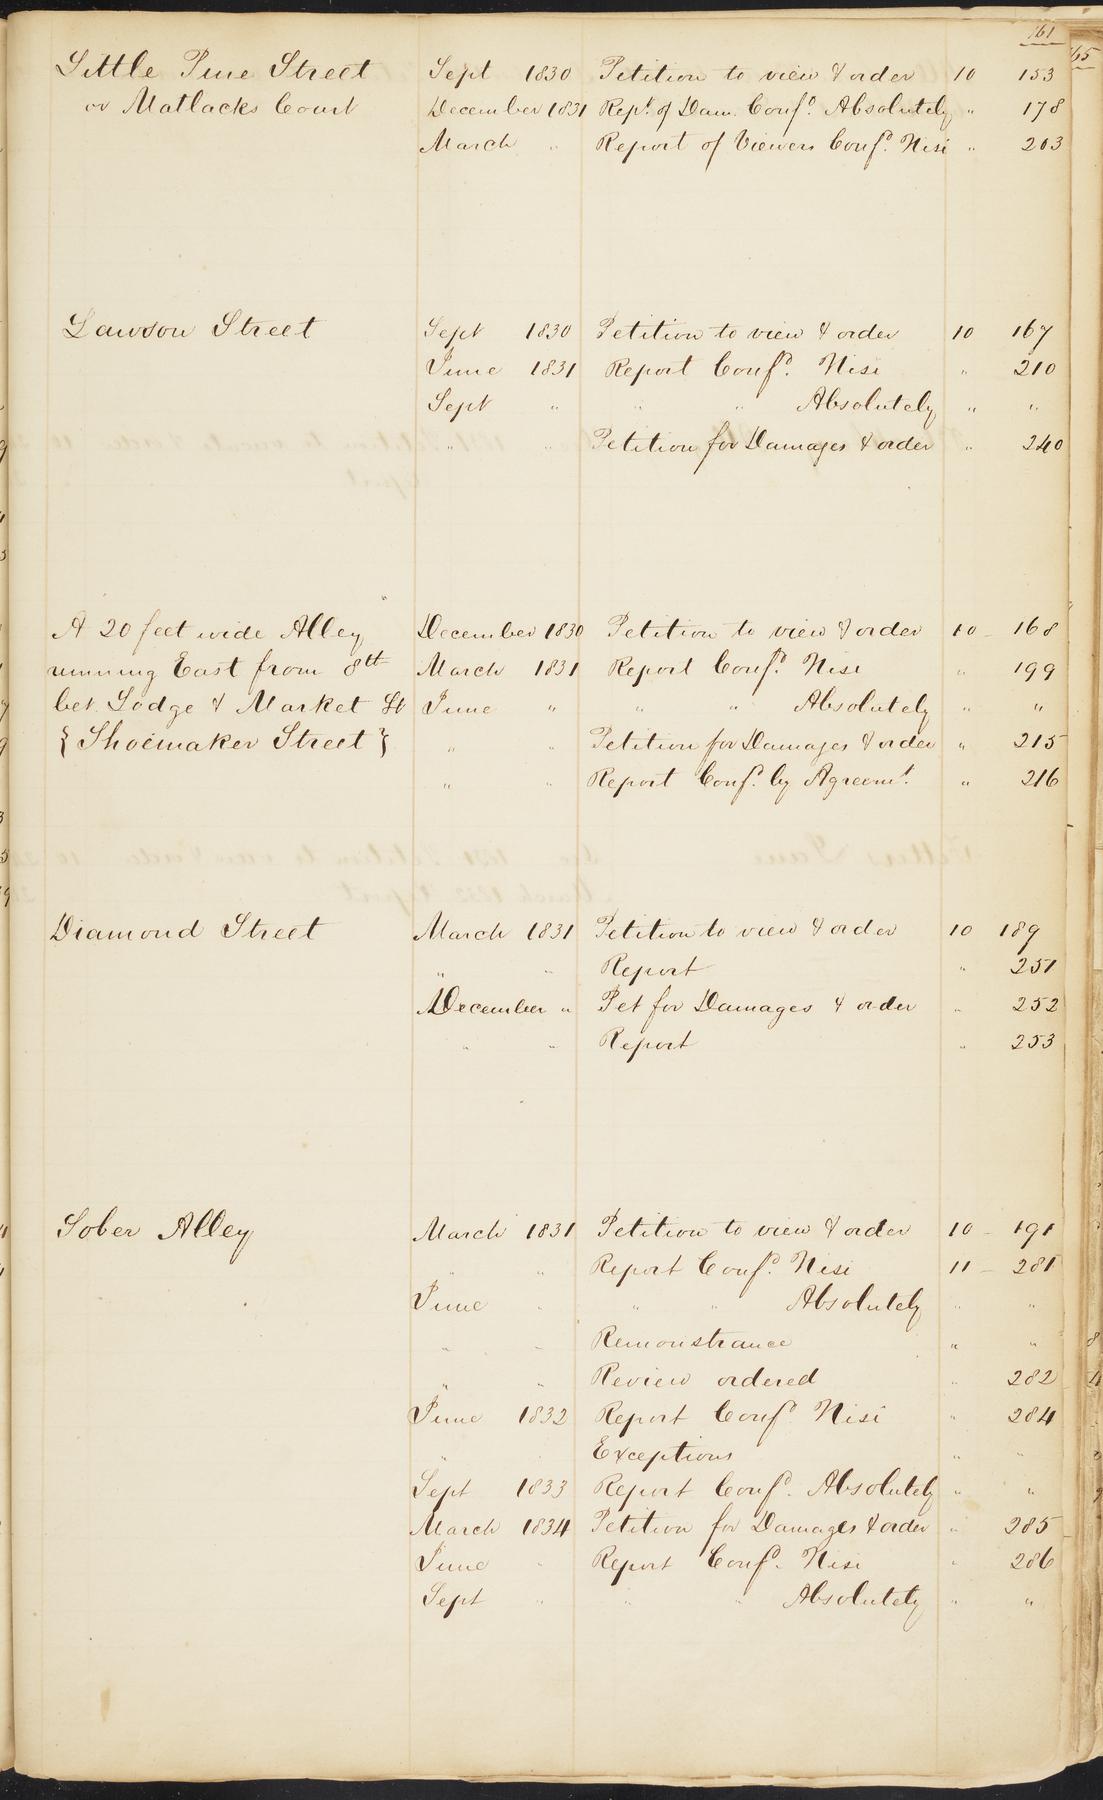 161
Little Pine Street Sept 1830 Petition to view & order 10 153
or Matlacks Court December 1831 Rept. of Dam. Confd. Absolutely " 178
March " Report of Viewers Confd. Nisi " 203
Lawson Street Sept 1830 Petition to view & order 10 167
June 1831 Report Confd. Nisi " 210
Sept " " " Absolutely " "
" " Petition for Damages & order " 240
A 20 feet wide Alley December 1830 Petition to view & order 10 168
running East from 8th March 1831 Report Confd. Nisi " 199
bet. Lodge & Market St June " " " Absolutely " "
{Shoemaker Street} " " Petition for Damages & order " 215
" " Report Confd. by Agreemt. " 216
Diamond Street March 1831 Petition to view & order 10 189
" " Report " 251
December " Pet for Damages & order " 252
" " Report " 253
Sober Alley March 1831 Petition to view & order 10 191
" " Report Confd. Nisi 11 281
June " " " Absolutely " "
" " Remonstrance " "
" " Review ordered " 282
June 1832 Report Confd. Nisi " 284
" " Exceptions " "
Sept 1833 Report Confd. Absolutely " "
March 1834 Petition for Damages & order " 285
June " Report Confd. Nisi " 286
Sept " " " Absolutely " "